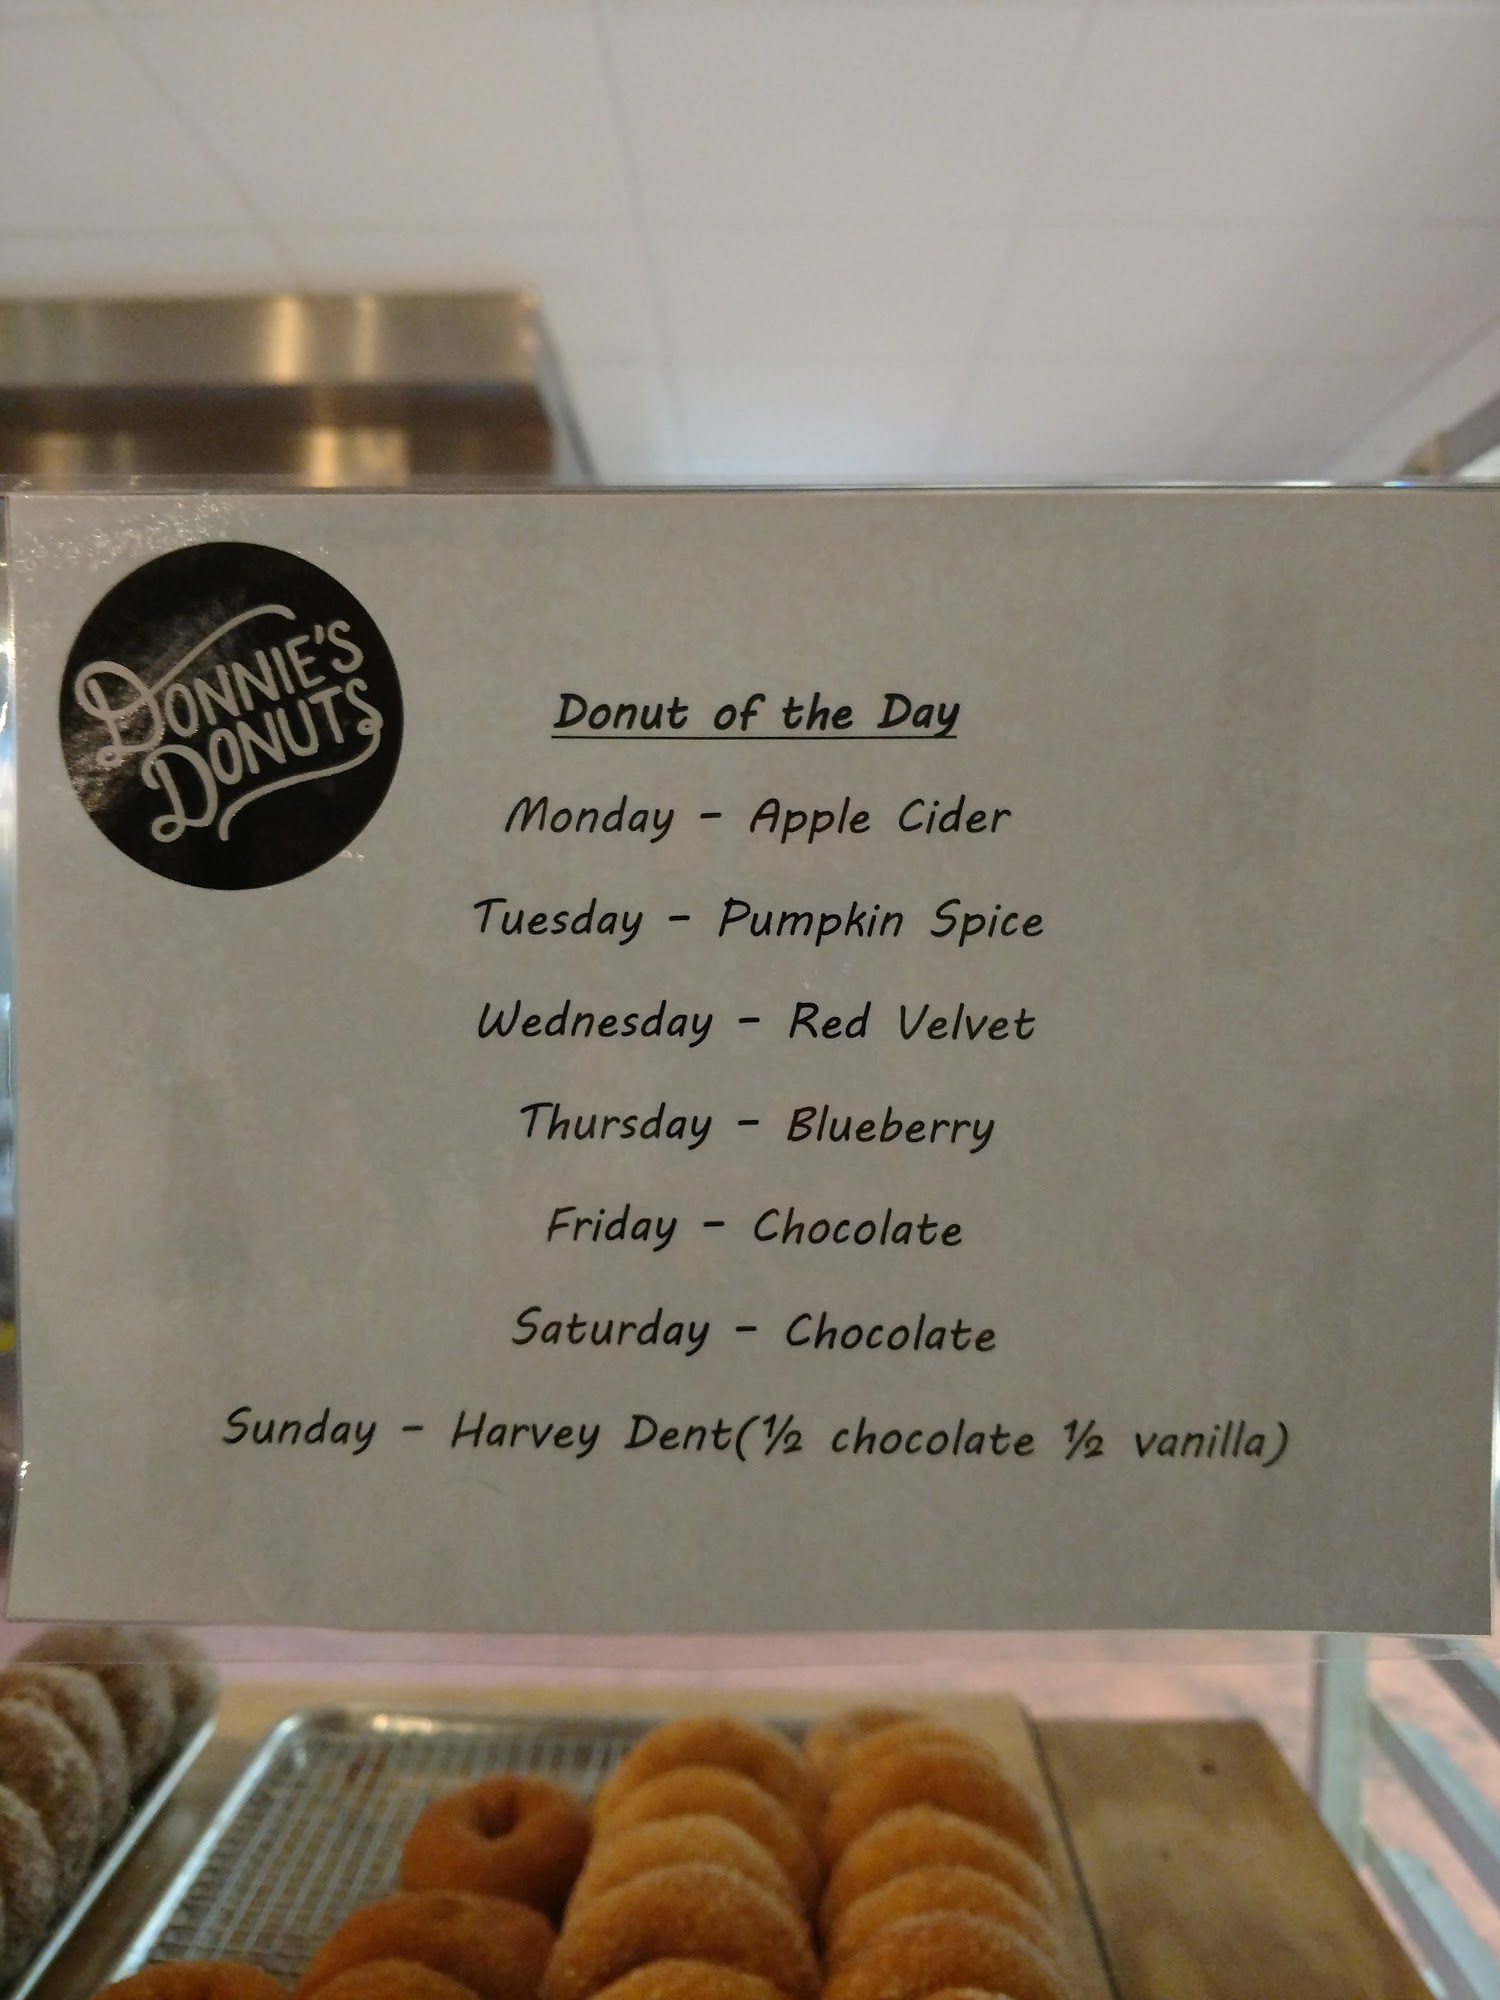 DONNIE'S
DONUTS
Donut of the Day
Monday - Apple Cider
Tuesday - Pumpkin Spice
Wednesday - Red Velvet
Thursday - Blueberry
Friday - Chocolate
Saturday - Chocolate
Sunday - Harvey Dent(½ chocolate ½ vanilla)